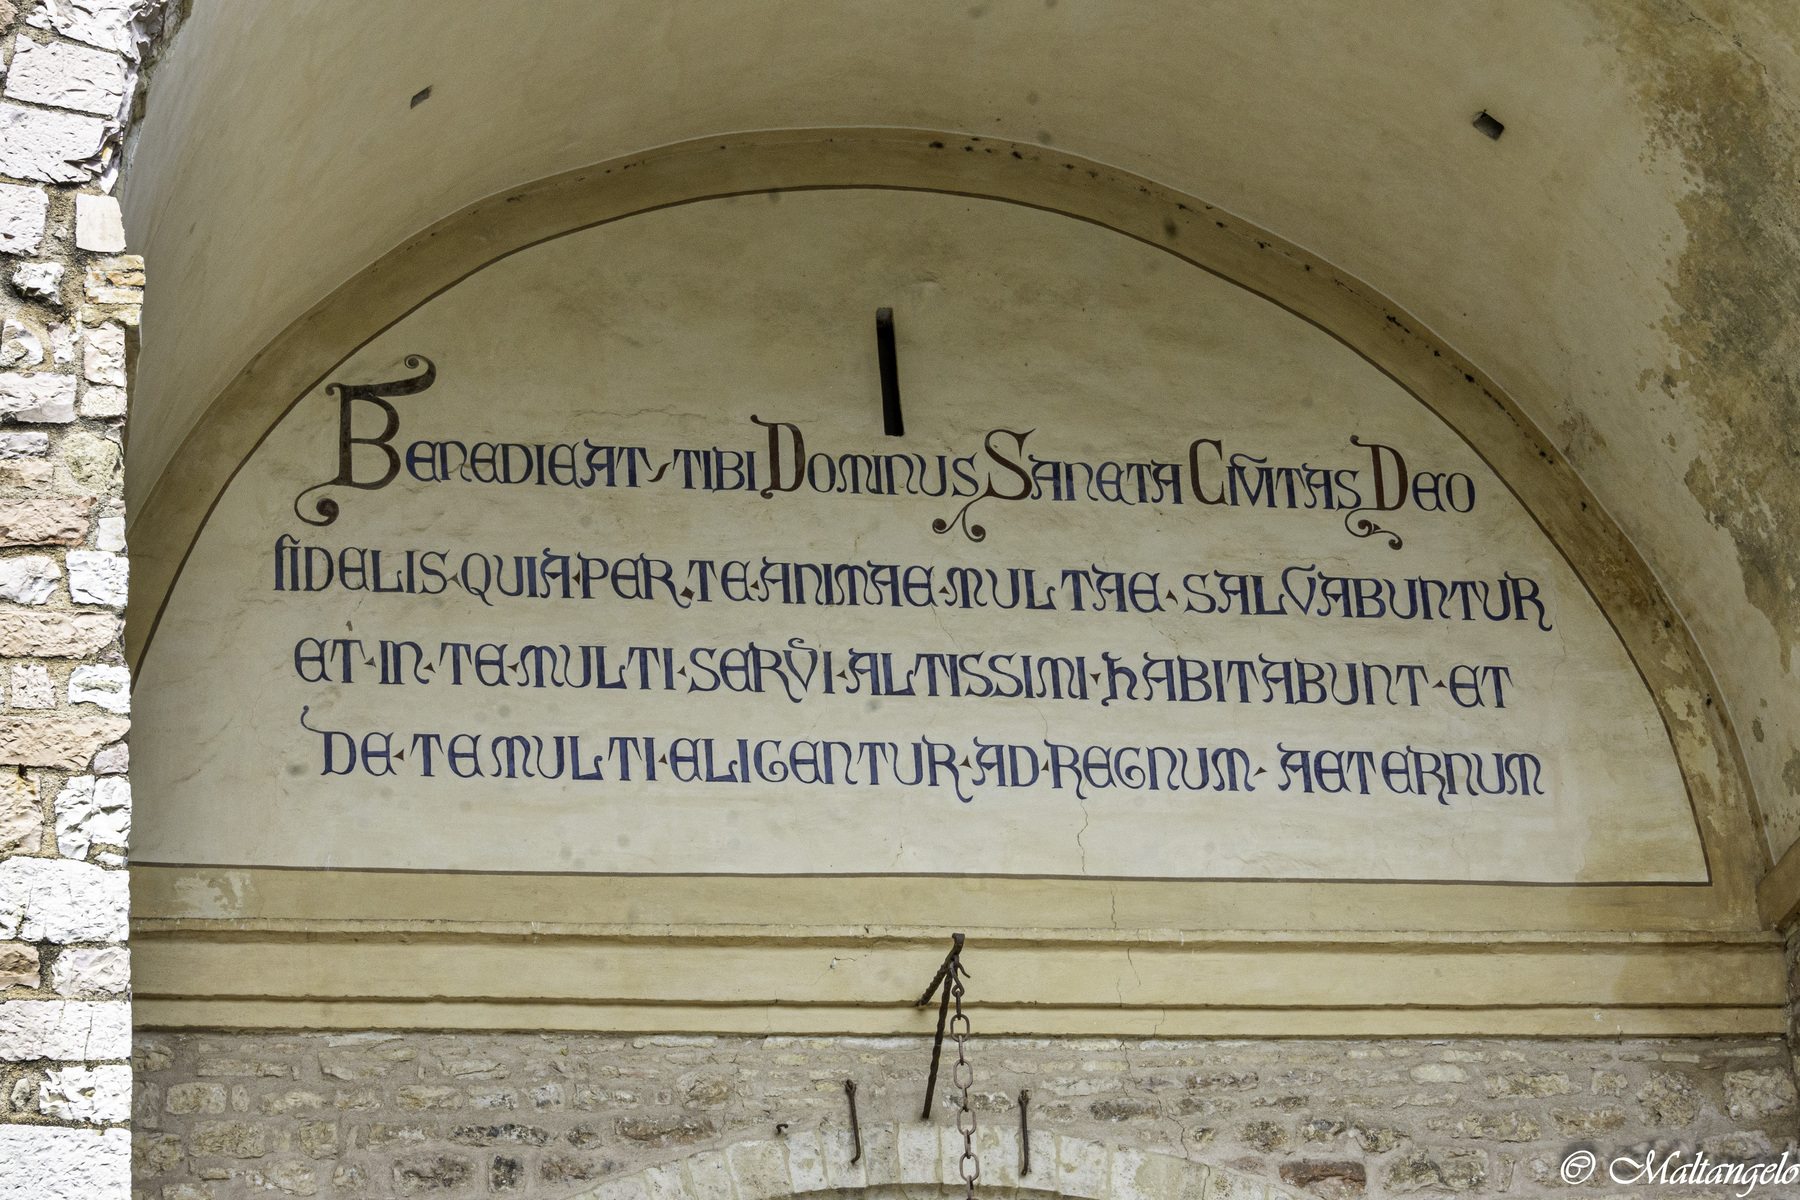 Benedicat tibi Dominus Sancta Civitas Deo
fidelis·quia·per·te·animae·multae·salvabuntur
et·in·te·multi·servi·altissimi·habitabunt·et
de·te multi·eligentur·ad·regnum·aeternum
© Maltangelo